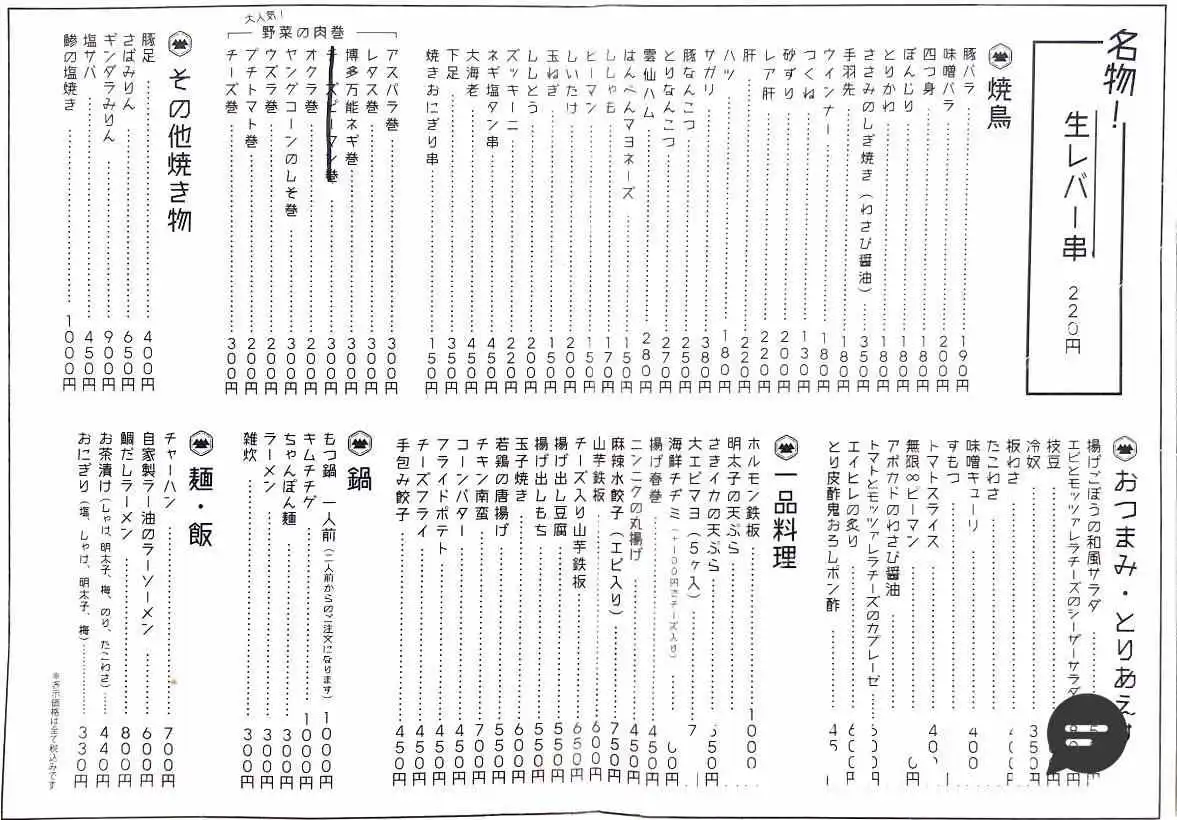 名物!
生レバー串 220円
焼鳥
豚バラ 190円
味噌バラ 200円
四つ身 180円
ぼんじり 180円
とりかわ 180円
ささみのしぎ焼き(わさび醤油) 350円
手羽先 180円
ウィンナー 180円
つくね 130円
砂ずり 200円
レア肝 220円
肝 220円
ハツ 180円
サガリ 380円
豚なんこつ 250円
とりなんこつ 270円
雲仙ハム 280円
はんぺんマヨネーズ 150円
ししゃも 170円
ピーマン 150円
しいたけ 200円
玉ねぎ 150円
ししとう 200円
ズッキーニ 220円
ネギ塩タン串 450円
大海老 450円
下足 350円
焼きおにぎり串 150円
大人気!
野菜の肉巻
アスパラ巻 300円
レタス巻 300円
博多万能ネギ巻 300円
チーズピーマン巻 300円
オクラ巻 300円
ヤングコーンのしそ巻 300円
ウズラ巻 300円
プチトマト巻 200円
チーズ巻 300円
その他焼き物
豚足 400円
さばみりん 650円
ギンダラみりん 900円
塩サバ 450円
鯵の塩焼き 1000円
おつまみ・とりあえ
揚げごぼうの和風サラダ
エビとモッツァレラチーズのシーザーサラダ
枝豆
冷奴 350
板わさ
たこわさ
味噌キューリ 400
すもつ
トマトスライス
無限∞ピーマン
アボカドのわさび醤油
トマトとモッツァレラチーズのカプレーゼ 500円
エイヒレの炙り 600円
とり皮酢鬼おろしポン酢
一品料理
ホルモン鉄板 1000
明太子の天ぷら
さきイカの天ぷら 550円
大エビマヨ(5ヶ入)
海鮮チヂミ(+100円でチーズ入り)
揚げ春巻 450円
ニンニクの丸揚げ 450円
麻辣水餃子(エビ入り) 750円
山芋鉄板 600円
チーズ入り山芋鉄板 650円
揚げ出し豆腐 550円
揚げ出しもち 550円
玉子焼き 550円
若鶏の唐揚げ 550円
チキン南蛮 700円
コーンバター 450円
フライドポテト 450円
チーズフライ 450円
手包み餃子 450円
鍋
もつ鍋 一人前(二人前からのご注文になります) 1000円
キムチチゲ 1000円
ちゃんぽん麺 300円
ラーメン 300円
雑炊 300円
麺・飯
チャーハン 700円
自家製ラー油のラーソーメン 600円
鯛だしラーメン 800円
お茶漬け(しゃけ、明太子、梅、のり、たこわさ) 440円
おにぎり(塩、しゃけ、明太子、梅) 330円
※表示価格は全て税込みです